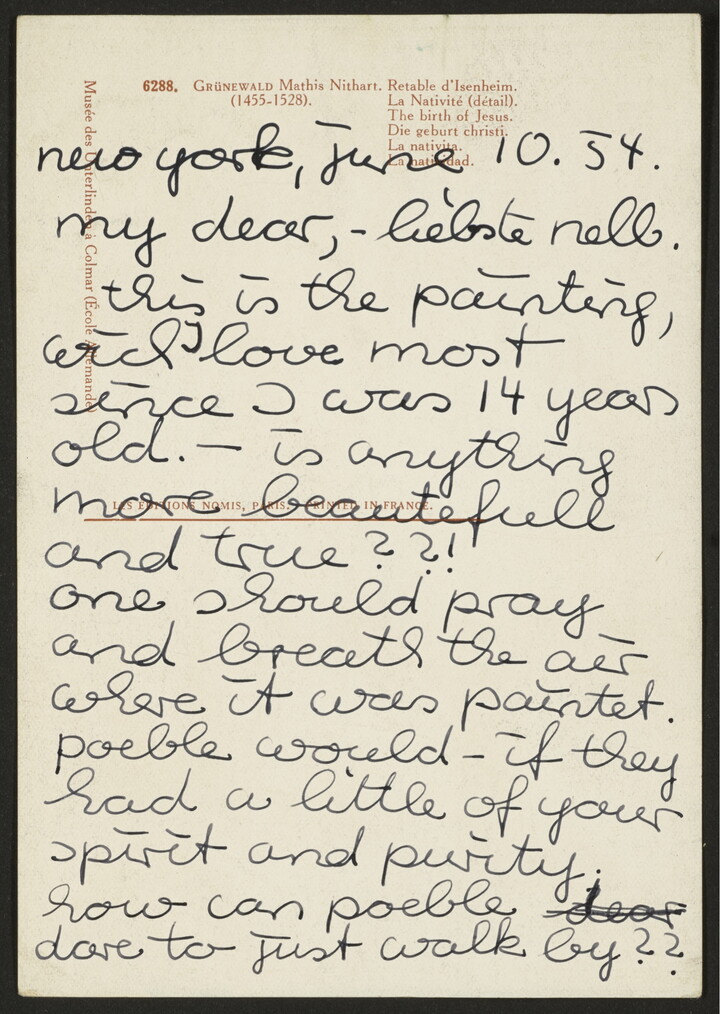 6288. GRÜNEWALD Mathis Nithart. Retable d'Isenheim.
(1455-1528). La Nativité (détail).
The birth of Jesus.
Die geburt christi.
La nativita.
La natividad.
Musée des Unterlinden à Colmar (École Allemande)
new york, june 10. 54.
my dear, - liebste nell.
this is the painting,
wich I love most
since I was 14 years
old. — is anything
more beautefull
LES EDITIONS NOMIS, PARIS. PRINTED IN FRANCE.
and true ??!
one should pray
and breath the air
where it was paintet.
poeble would - if they
had a little of your
spirit and purity.
how can poeble dear
dare to just walk by??